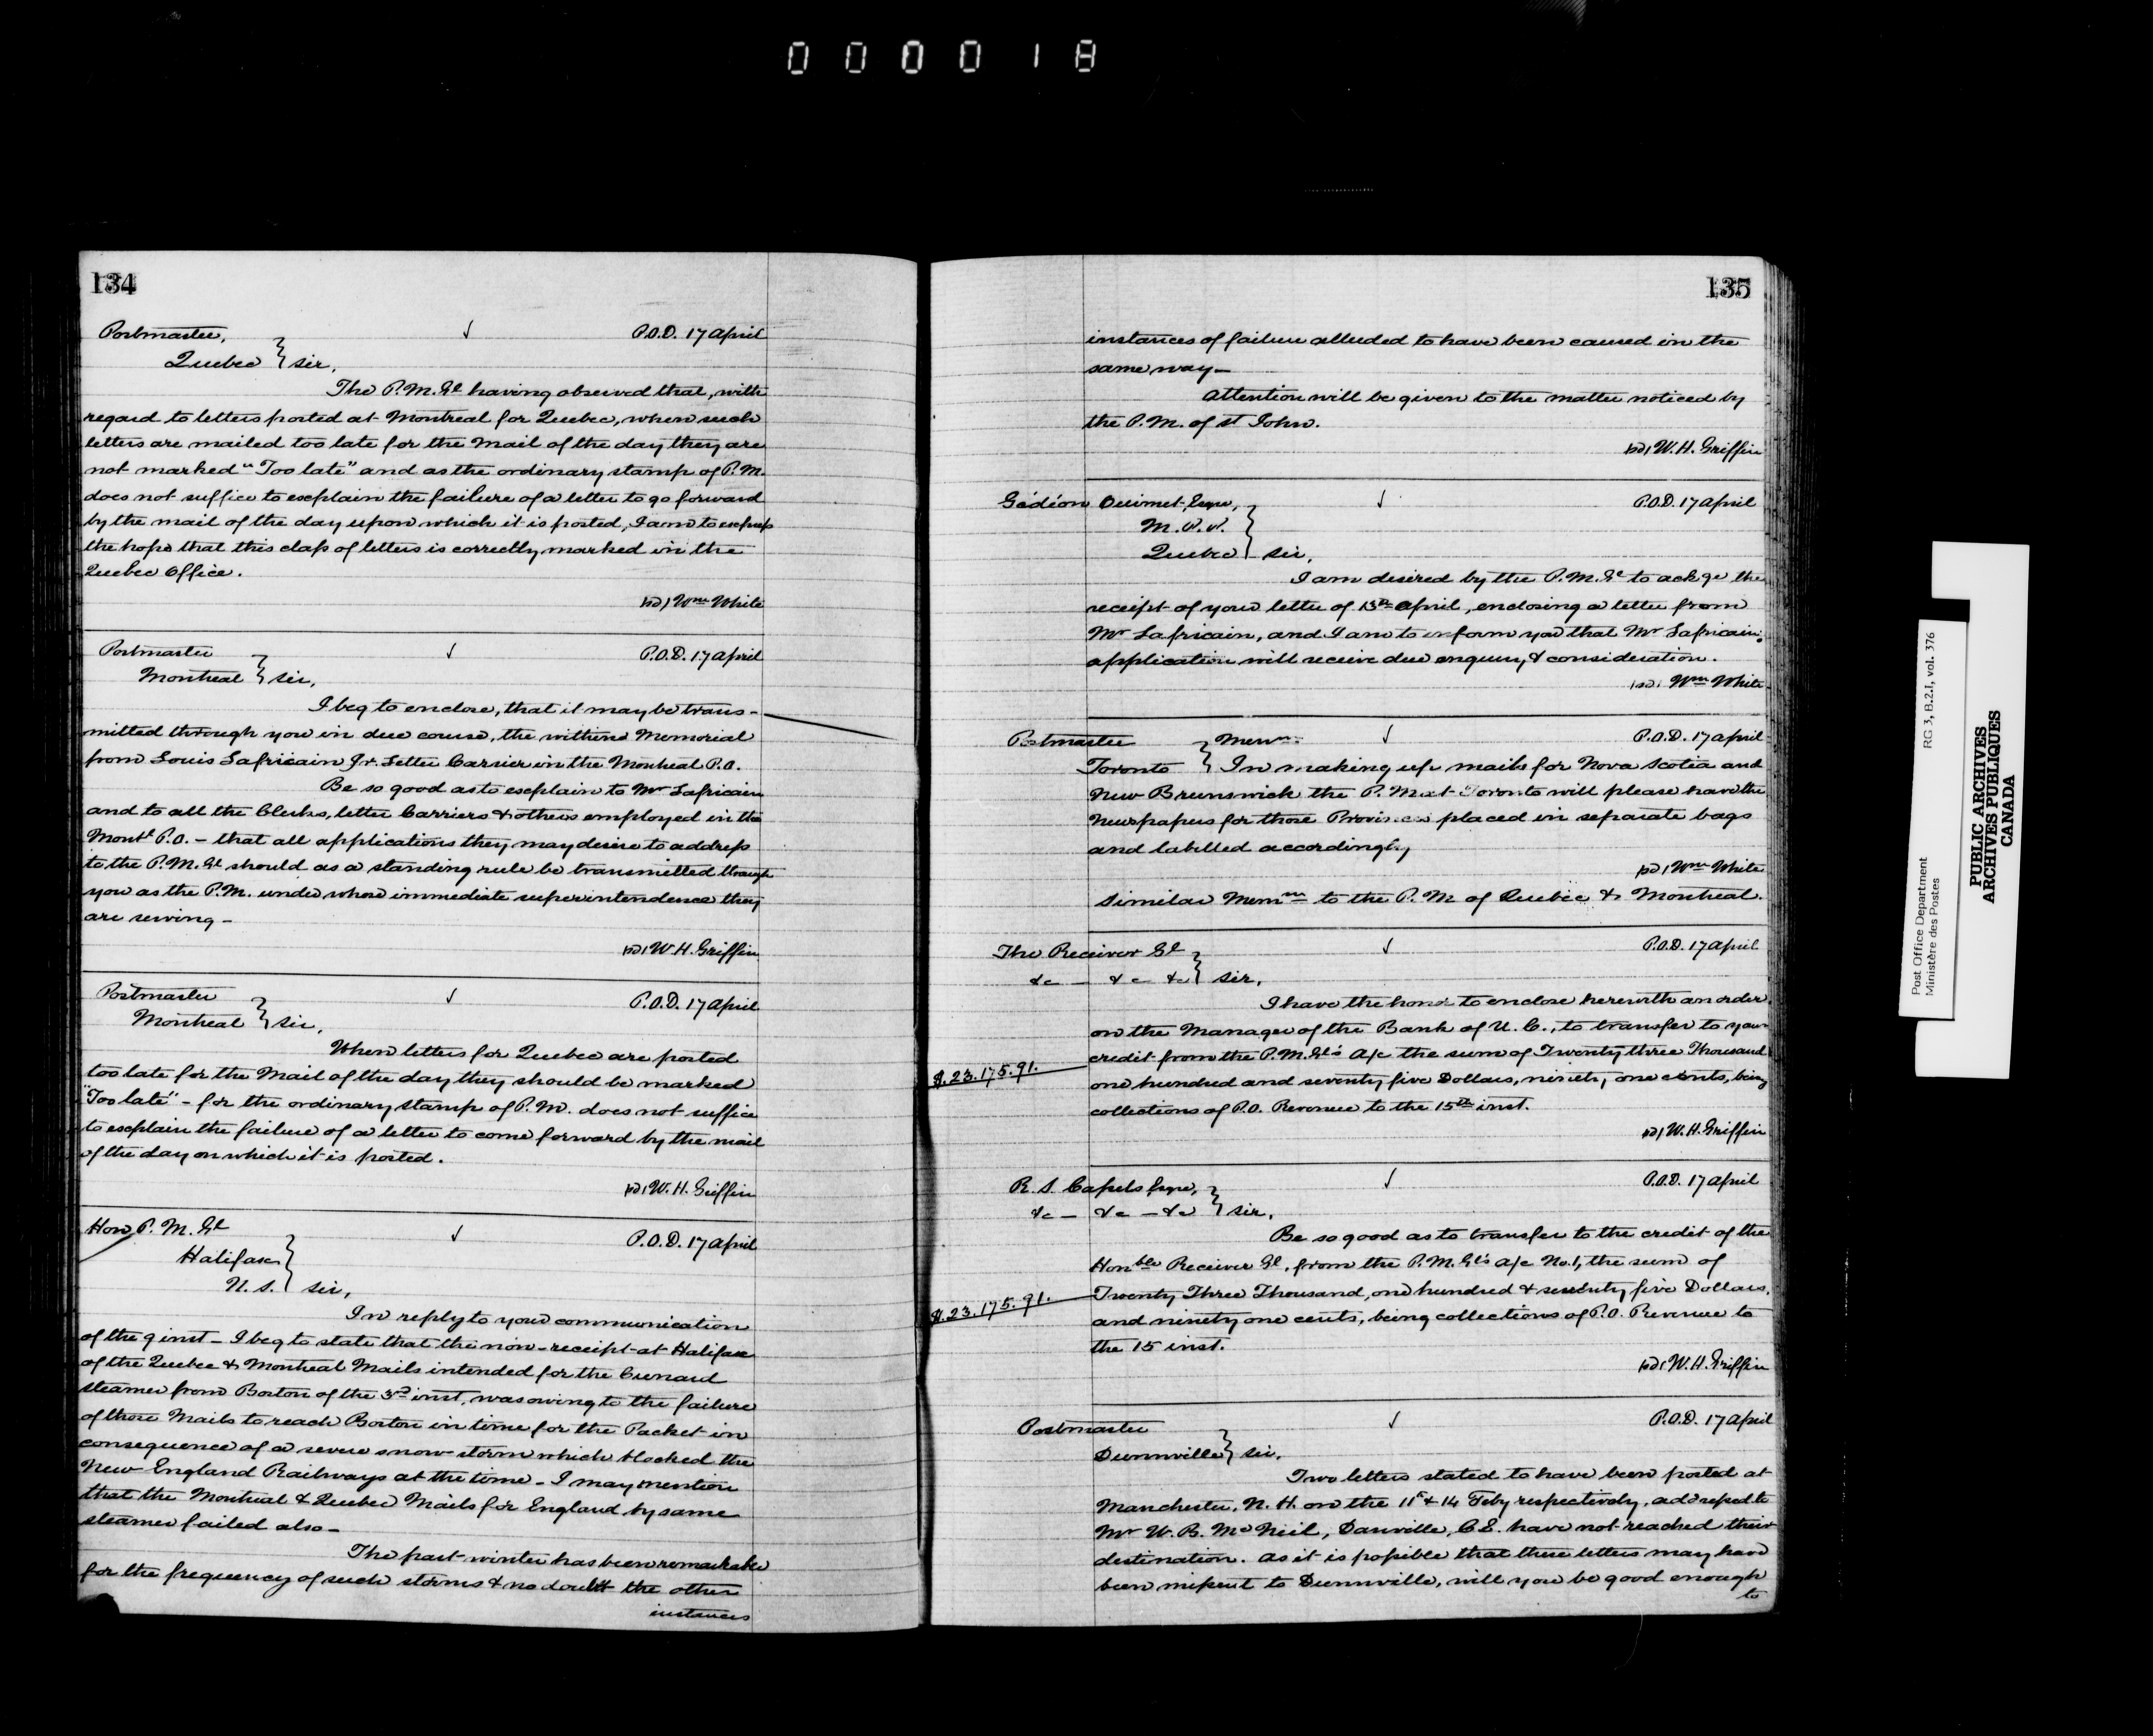 000018
134
Postmaster, P.O.D. 17 April
Quebec } Sir,
The P.M. Gl having observed that, with
regard to letters posted at Montreal for Quebec, when such
letters are mailed too late for the Mail of the day they are
not marked "Too late" and as the ordinary stamp of P.M.
does not suffice to explain the failure of a letter to go forward
by the mail of the day upon which it is posted, I am to express
the hope that this class of letters is correctly marked in the
Quebec Office.
Wm White
Postmaster P.O.D. 17 April
Montreal } Sir,
I beg to enclose, that it may be trans-
mitted through you in due course, the within Memorial
from Louis Lafricain Jr. Letter Carrier in the Montreal P.O.
Be so good as to explain to Mr Lafricain
and to all the Clerks, letter Carriers & others employed in the
Montl P.O. - that all applications they may desire to address
to the P.M. Gl should as a standing rule be transmitted through
you as the P.M. under whose immediate superintendence they
are serving -
W.H. Griffin
Postmaster P.O.D. 17 April
Montreal } Sir,
When letters for Quebec are posted
too late for the Mail of the day they should be marked
"Too late" - for the ordinary stamp of P.M. does not suffice
to explain the failure of a letter to come forward by the mail
of the day on which it is posted.
W.H. Griffin
Hon P.M. Gl P.O.D. 17 April
Halifax
N.S. } Sir,
In reply to your communication
of the 9 inst - I beg to state that the non-receipt at Halifax
of the Quebec & Montreal Mails intended for the Cunard
steamer from Boston of the 3rd inst, was owing to the failure
of those Mails to reach Boston in time for the Packet in
consequence of a severe snow storm which blocked the
New England Railways at the time - I may mention
that the Montreal & Quebec Mails for England by same
steamer failed also -
The past winter has been remarkable
for the frequency of such storms & no doubt the other
instances
135
instances of failure alluded to have been caused in the
same way -
Attention will be given to the matter noticed by
the P.M. of St John.
W.H. Griffin
Gédéon Ouimet, Esqre, P.O.D. 17 April
M.P.P.
Quebec } Sir,
I am desired by the P.M. Gl to ackge the
receipt of your letter of 13th April, enclosing a letter from
Mr Lafricain, and I am to inform you that Mr Lafricain's
application will receive due enquiry & consideration.
Wm White
Postmaster } Memm. P.O.D. 17 April
Toronto } In making up mails for Nova Scotia and
New Brunswick the P.M. at Toronto will please have the
Newspapers for those Provinces placed in separate bags
and labelled accordingly
Wm White
Similar Memm to the P.M. of Quebec & Montreal.
The Receiver Gl P.O.D. 17 April
&c - &c &c } Sir,
I have the honor to enclose herewith an order
on the Manager of the Bank of U.C., to transfer to your
credit from the P.M. Gl's a/c the sum of Twenty three Thousand
$.23.175.91.
one hundred and seventy five Dollars, ninety one cents, being
collections of P.O. Revenue to the 15th inst.
W.H. Griffin
R.S. Cassels Esqre, P.O.D. 17 April
&c - &c - &c } Sir,
Be so good as to transfer to the credit of the
Honble Receiver Gl, from the P.M. Gl's a/c No.1, the sum of
$.23.175.91. Twenty Three Thousand, one hundred & seventy five Dollars,
and ninety one cents, being collections of P.O. Revenue to
the 15 inst.
W.H. Griffin
Postmaster P.O.D. 17 April
Dunnville } Sir,
Two letters stated to have been posted at
Manchester, N.H. on the 11 & 14 Feby respectively, addressed to
Mr W.B. McNeil, Danville, C.E. have not reached their
destination. As it is possible that these letters may have
been missent to Dunnville, will you be good enough
to
Post Office Department RG 3, B.2.I, vol. 376
Ministère des Postes
PUBLIC ARCHIVES
ARCHIVES PUBLIQUES
CANADA